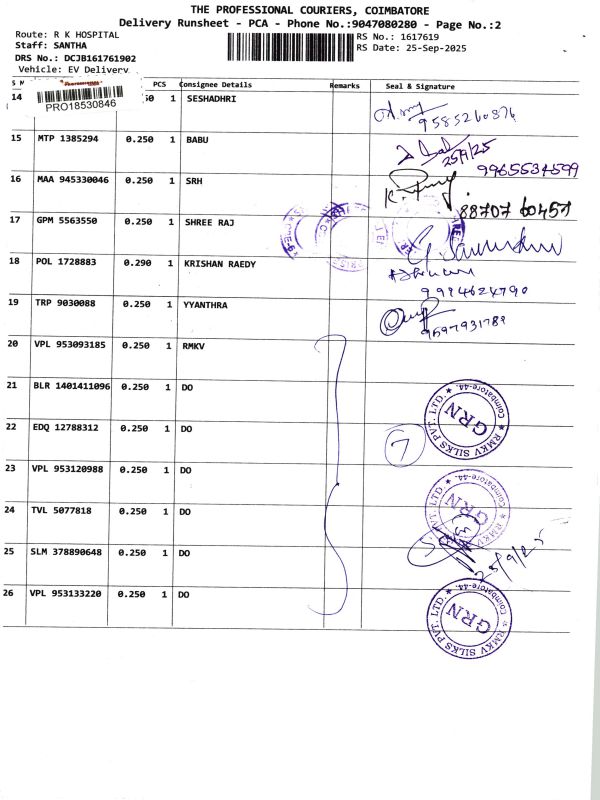 THE PROFESSIONAL COURIERS, COIMBATORE
Delivery Runsheet - PCA - Phone No.:9047080280 - Page No.:2
Route: R K HOSPITAL
Staff: SANTHA
DRS No.: DCJB161761902
Vehicle: EV Delivery
RS No.: 1617619
RS Date: 25-Sep-2025
PCS Consignee Details Remarks Seal & Signature
PRO18530846
14 1 SESHADHRI
9585260876
15 MTP 1385294 0.250 1 BABU
25/9/25
9965534599
16 MAA 945330046 0.250 1 SRH
88707 60457
17 GPM 5563550 0.250 1 SHREE RAJ
18 POL 1728883 0.290 1 KRISHAN RAEDY
9994624790
19 TRP 9030088 0.250 1 YYANTHRA
9597931789
20 VPL 953093185 0.250 1 RMKV
21 BLR 1401411096 0.250 1 DO
RMKV SILKS PVT. LTD. ★ Coimbatore-44. ★
GRN
22 EDQ 12788312 0.250 1 DO
7
23 VPL 953120988 0.250 1 DO
RMKV SILKS PVT. LTD. ★ Coimbatore-44. ★
GRN
24 TVL 5077818 0.250 1 DO
25/9/25
25 SLM 378890648 0.250 1 DO
26 VPL 953133220 0.250 1 DO
RMKV SILKS PVT. LTD. ★ Coimbatore-44. ★
GRN